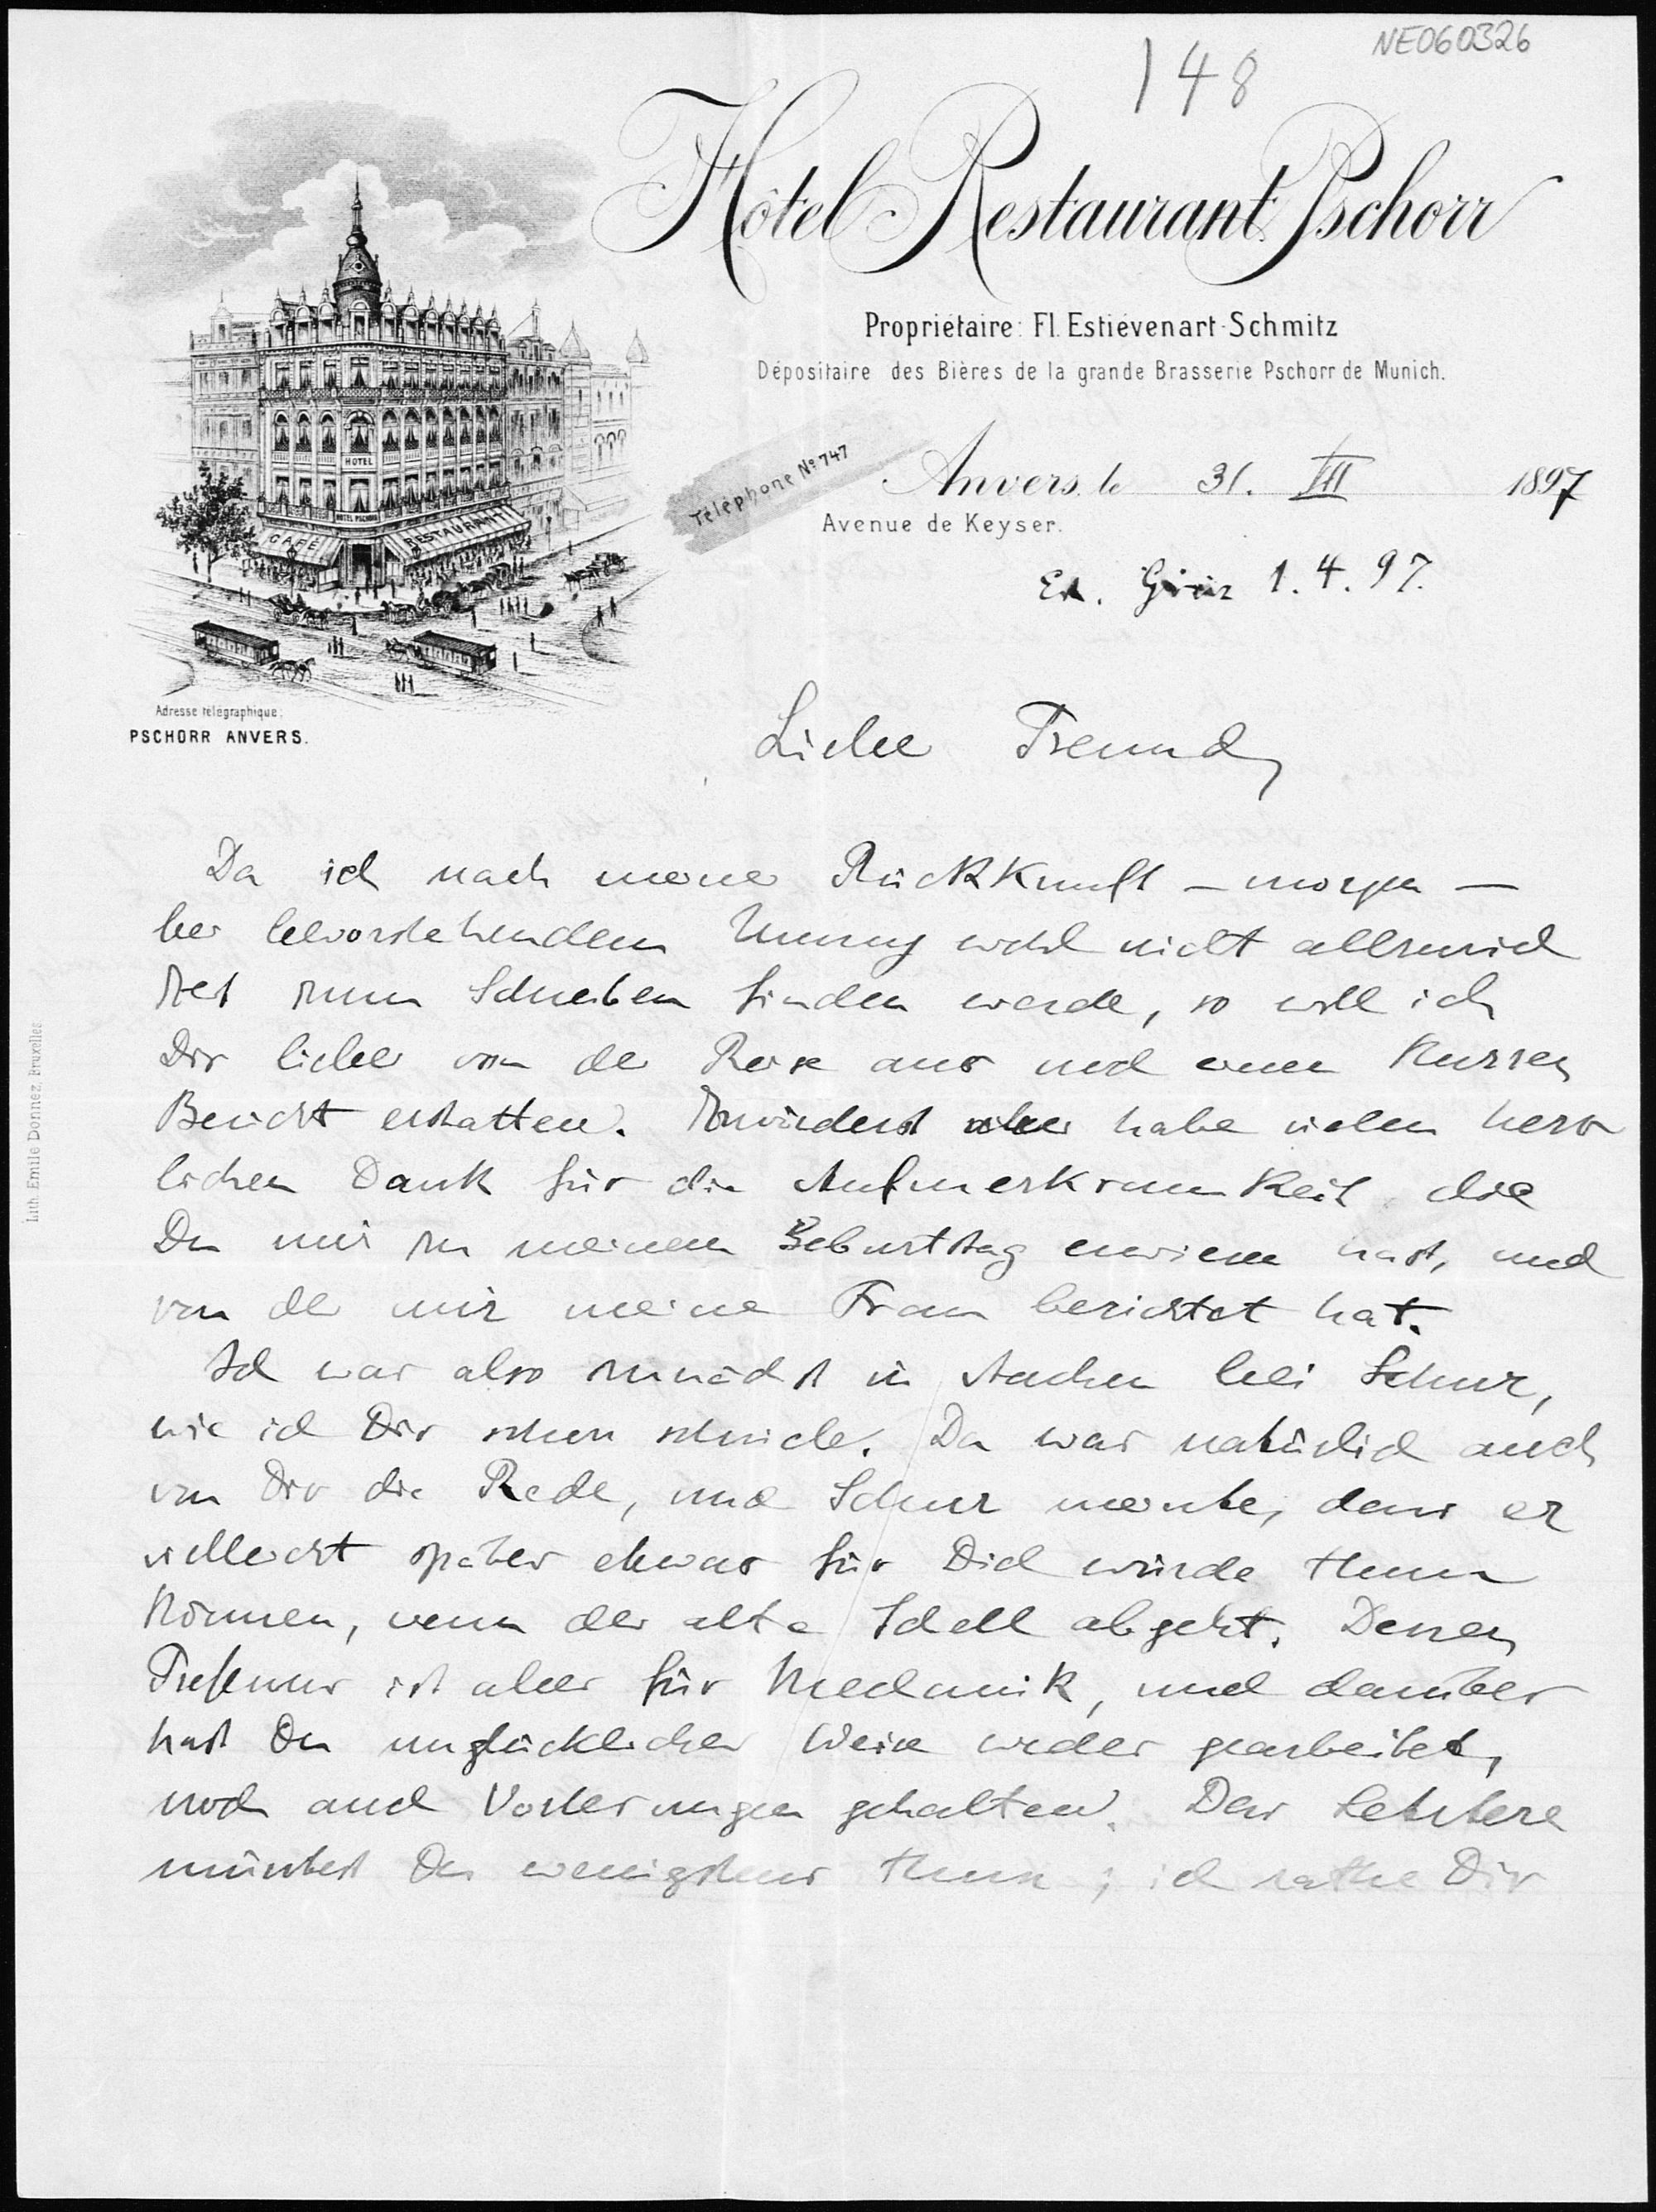 NE060326
148
Hôtel Restaurant Pschorr
Propriétaire: Fl. Estiévenart-Schmitz
Dépositaire des Bières de la grande Brasserie Pschorr de Munich.
Téléphone Nº 747
Anvers, le 31. III 1897
Avenue de Keyser.
1.4.97.
HOTEL
HOTEL PSCHORR
CAFÉ
RESTAURANT
Adresse télégraphique:
PSCHORR ANVERS.
Lith. Emile Donnez, Bruxelles
Lieber Freund,
Da ich nach meiner Rückkunft – morgen –
bei bevorstehendem Umzug wohl nicht allzuviel
Zeit zum Schreiben finden werde, so will ich
Dir lieber von der Reise aus noch einen kurzen
Bericht erstatten. Zuvörderst aber habe vielen herz
lichen Dank für die Aufmerksamkeit die
Du mir zu meinem Geburtstag erwiesen hast, und
von der mir meine Frau berichtet hat.
Ich war also zunächst in Aachen bei Schur,
wie ich Dir schon schrieb. Da war natürlich auch
von Dir die Rede, und Schur meinte, dass er
vielleicht später etwas für Dich würde thun
können, wenn der alte Schell abgeht. Dessen
Professur ist aber für Mechanik, und darüber
hast Du unglücklicher Weise weder gearbeitet,
noch auch Vorlesungen gehalten. Das letztere
müsstest Du wenigstens thun; ich rathe Dir